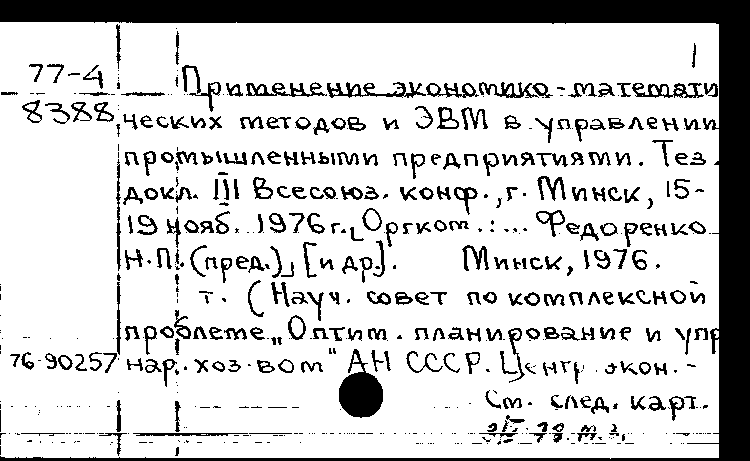 1
77-4 Применение экономико-математи
8388 ческих методов и ЭВМ в управлении
промышленными предприятиями. Тез.
докл. III Всесоюз. конф., г. Минск, 15-
19 нояб. 1976 г. [Оргком.: ... Федоренко
Н.П. (пред.)], [и др.]. Минск, 1976.
т. (Науч. совет по комплексной
проблеме „Оптим. планирование и упр
76-90257 нар. хоз-вом" АН СССР. Центр. экон.-
См. след. карт.